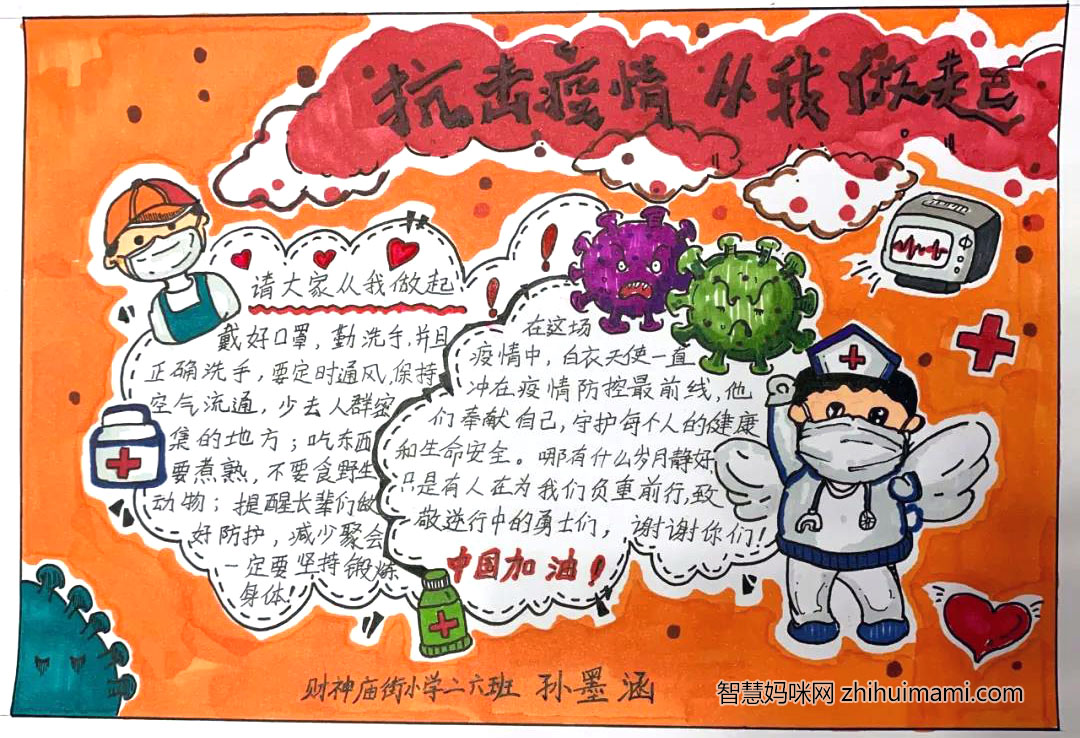 抗击疫情 从我做起
请大家从我做起
戴好口罩，勤洗手，并且
正确洗手，要定时通风，保持
空气流通，少去人群密
集的地方；吃东西
要煮熟，不要食野生
动物；提醒长辈们做
好防护，减少聚会
一定要坚持锻炼
身体！
在这场
疫情中，白衣天使一直
冲在疫情防控最前线，他
们奉献自己，守护每个人的健康
和生命安全。哪有什么岁月静好
只是有人在为我们负重前行，致
敬逆行中的勇士们，谢谢你们！
中国加油！
财神庙街小学二六班 孙墨涵
智慧妈咪网 zhihuimami.com